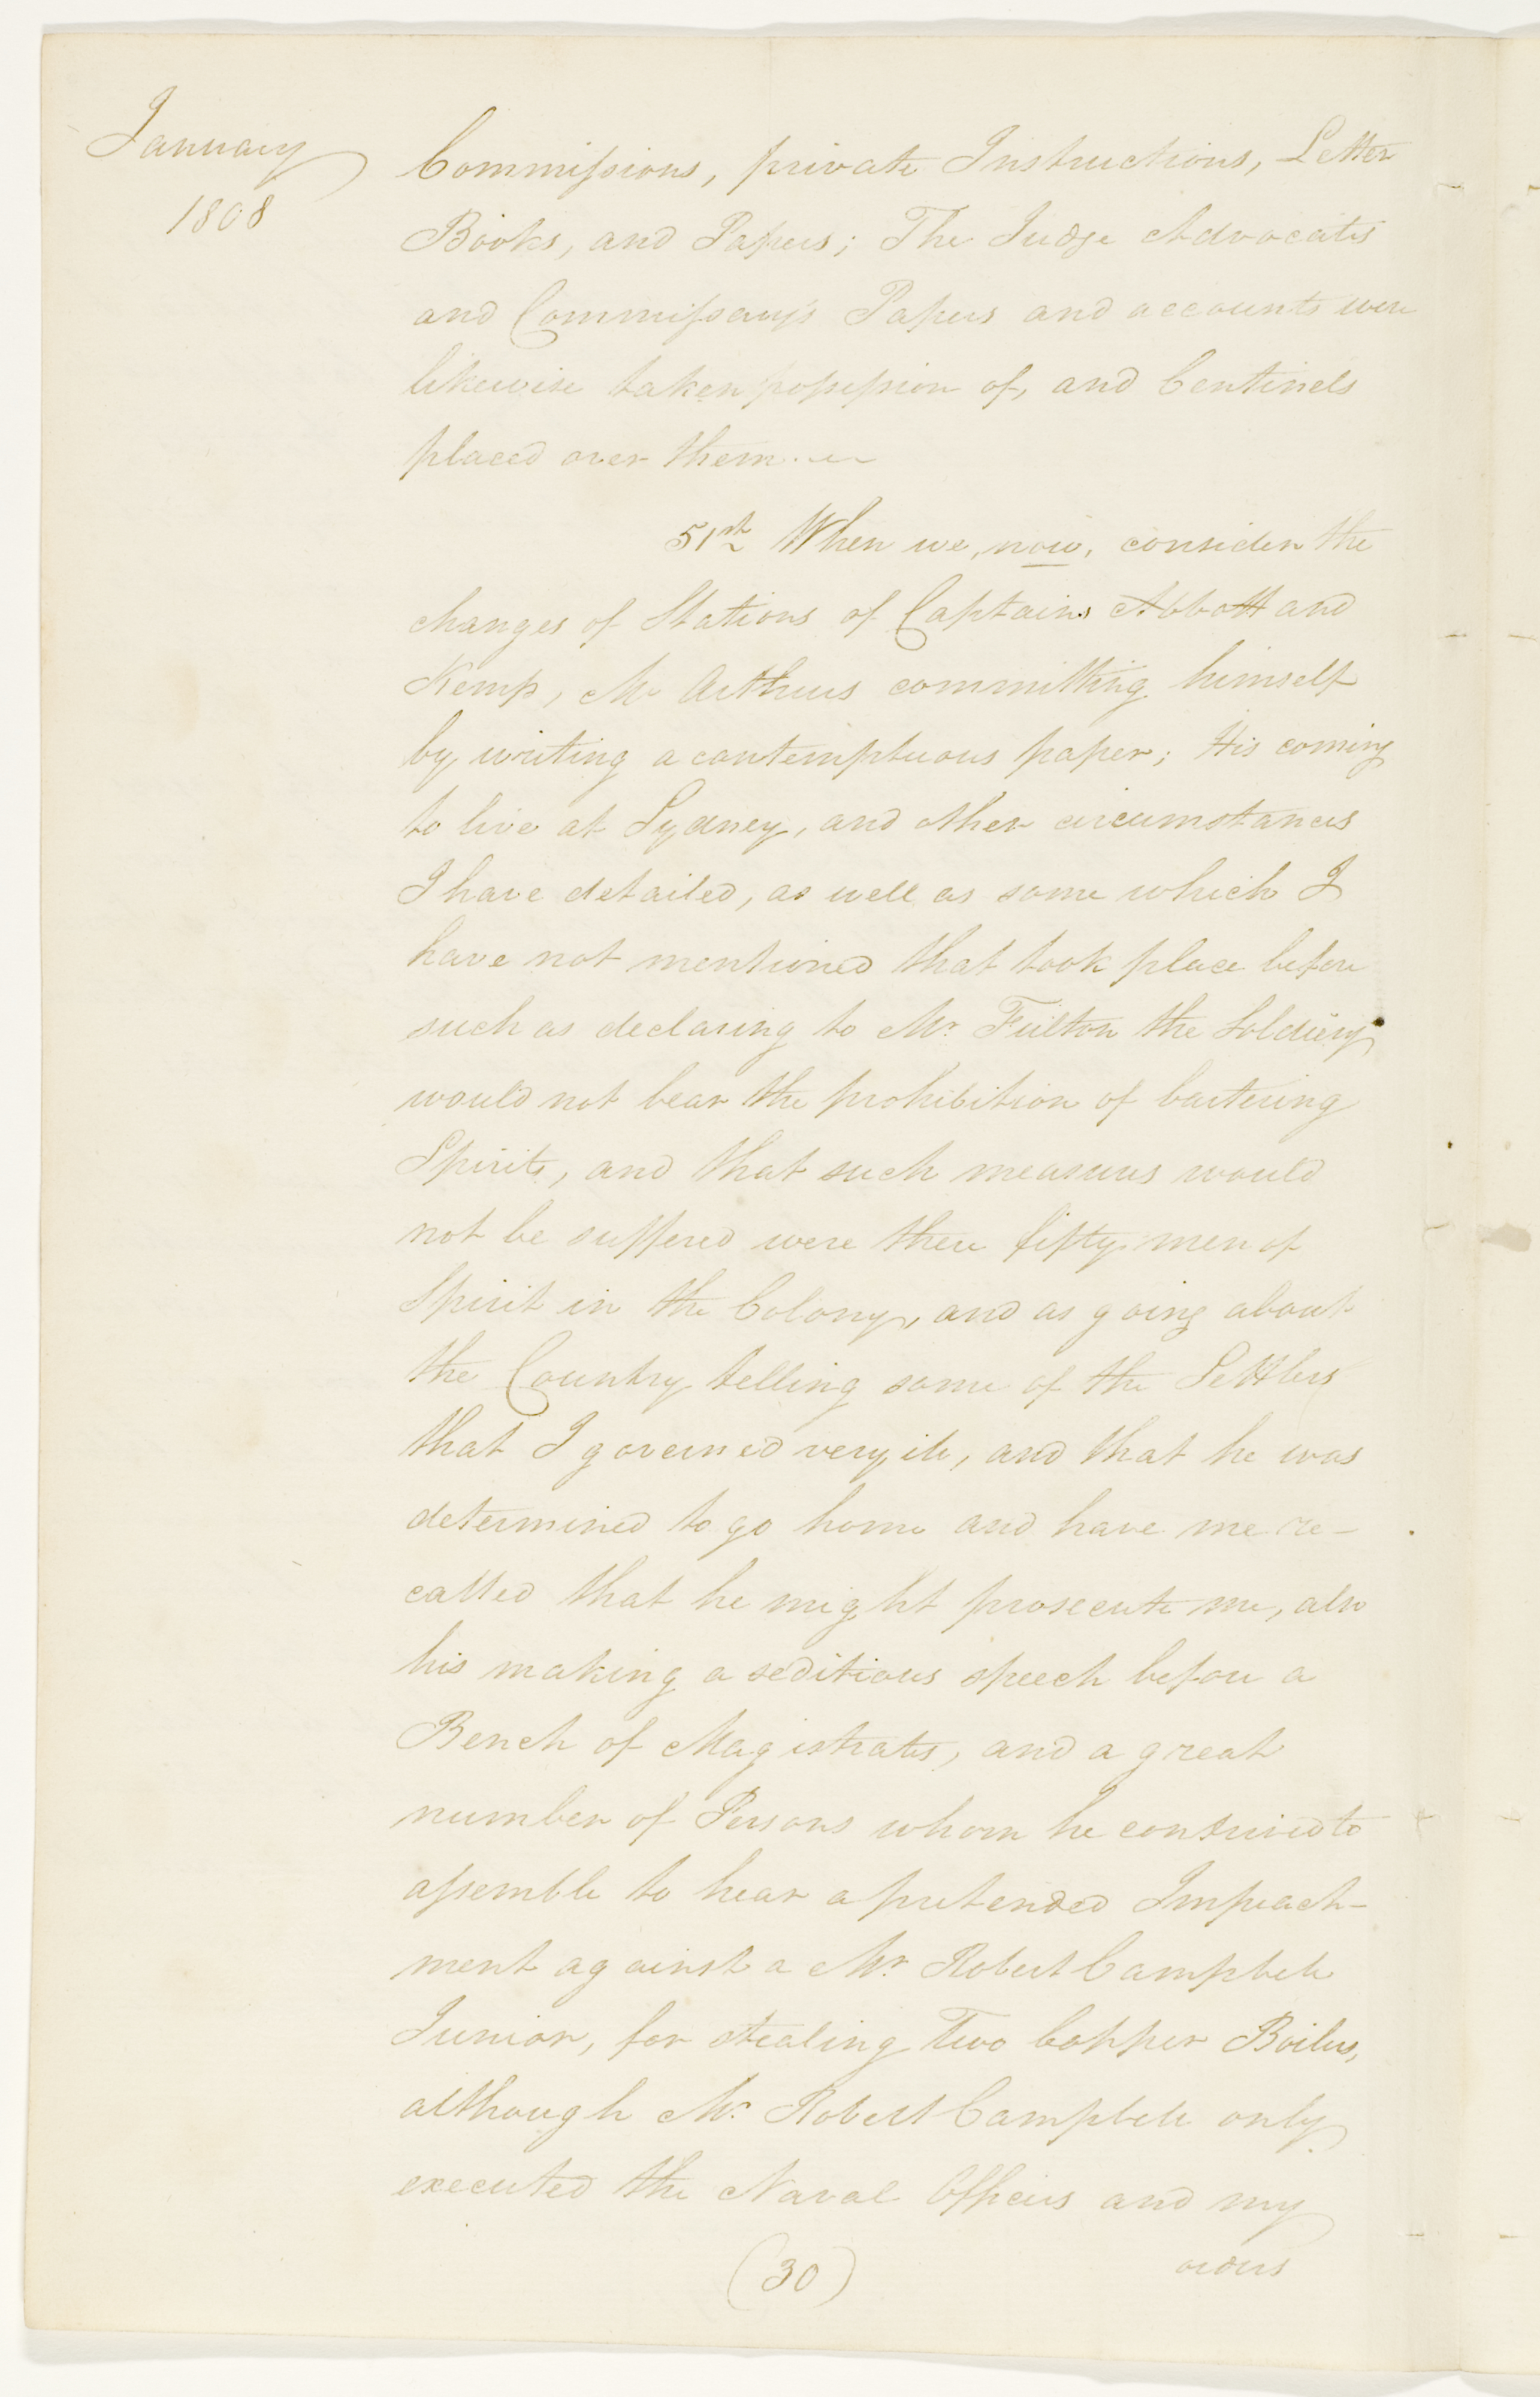 January
1808
Commissions, private Instructions, Letter
Books, and Papers; The Judge Advocates
and Commissarys Papers and accounts were
likewise taken possession of, and Centinels
placed over them.
51st When we, now, consider the
changes of Stations of Captains Abbott and
Kemp, Mc Arthurs committing himself
by writing a contemptuous paper; His coming
to live at Sydney, and other circumstances
I have detailed, as well as some which I
have not mentioned that took place before
such as declaring to Mr. Fulton the Soldiery
would not bear the prohibition of bartering
Spirits, and that such measures would
not be suffered were there fifty men of
Spirit in the Colony, and as going about
the Country telling some of the Settlers
that I governed very ill, and that he was
determined to go home and have me re-
called that he might prosecute me, also
his making a seditious speech before a
Bench of Magistrates, and a great
number of Persons whom he contrived to
assemble to hear a pretended Impeach-
ment against a Mr. Robert Campbell
Junior, for stealing Two Copper Boilers,
although Mr. Robert Campbell only
executed the Naval Officers and my
orders
(30)